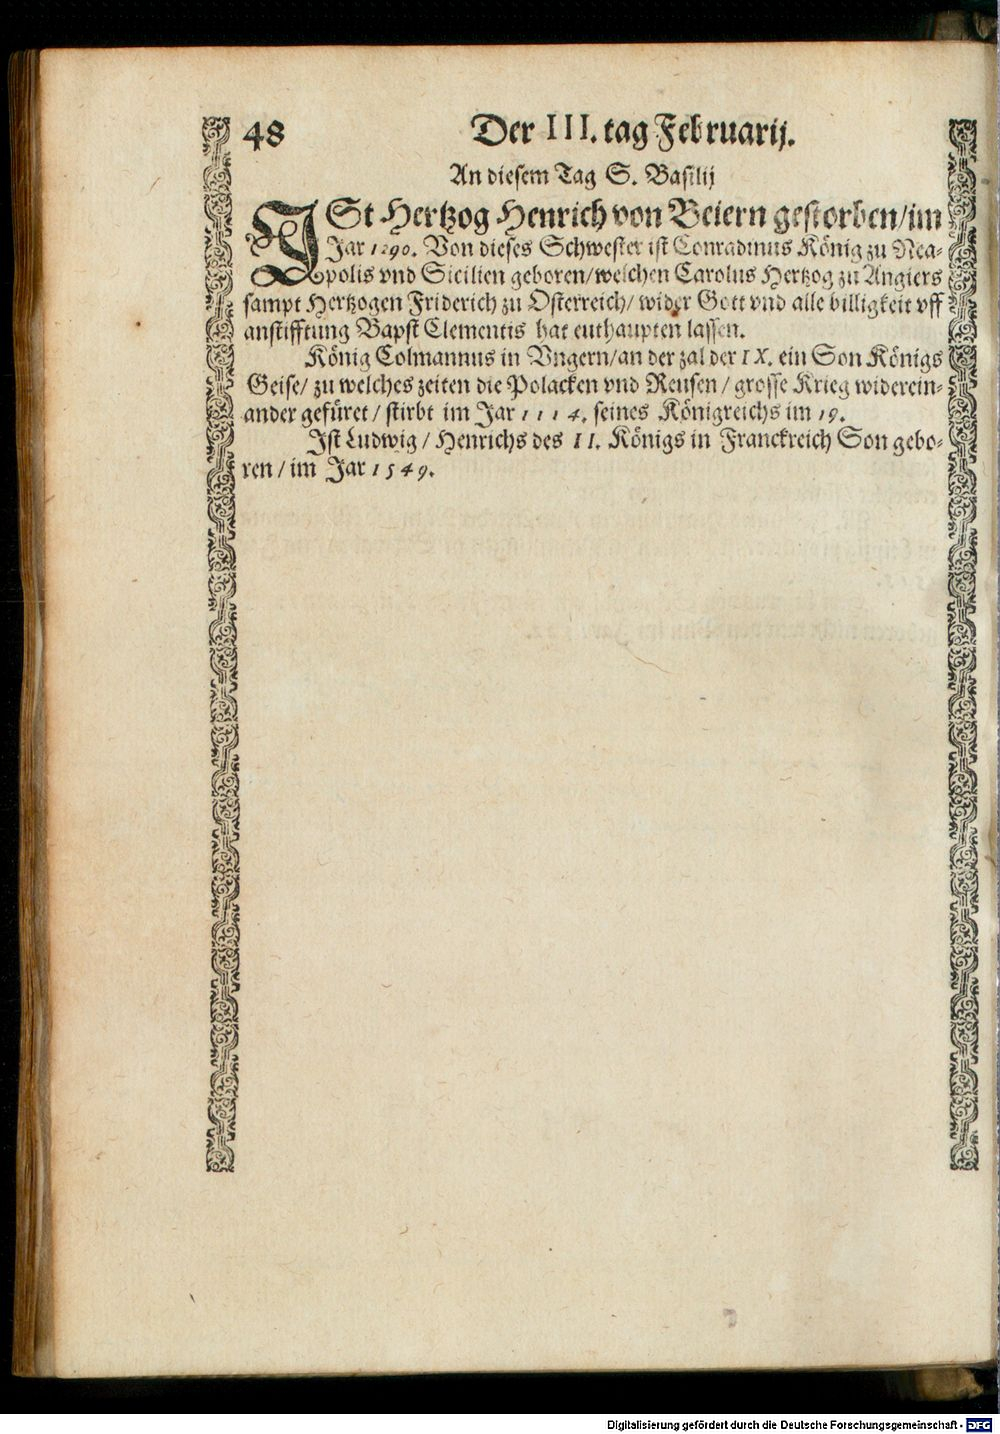 48 Der III. tag Februarij.
An diesem Tag S. Basilij
ISt Hertzog Henrich von Beiern gestorben/im
Jar 1290. Von dieses Schwester ist Conradinus König zu Nea-
polis vnd Sicilien geboren/welchen Carolus Hertzog zu Angiers
sampt Hertzogen Friderich zu Osterreich/ wider Gott vnd alle billigkeit vff
anstifftung Bapst Clementis hat enthaupten lassen.
König Colmannus in Vngern/an der zal der IX. ein Son Königs
Geise/ zu welches zeiten die Polacken vnd Reusen/ grosse Krieg widerein-
ander gefüret/ stirbt im Jar 1114. seines Königreichs im 19.
Ist Ludwig/ Henrichs des II. Königs in Franckreich Son gebo-
ren/ im Jar 1549.
Digitalisierung gefördert durch die Deutsche Forschungsgemeinschaft - DFG